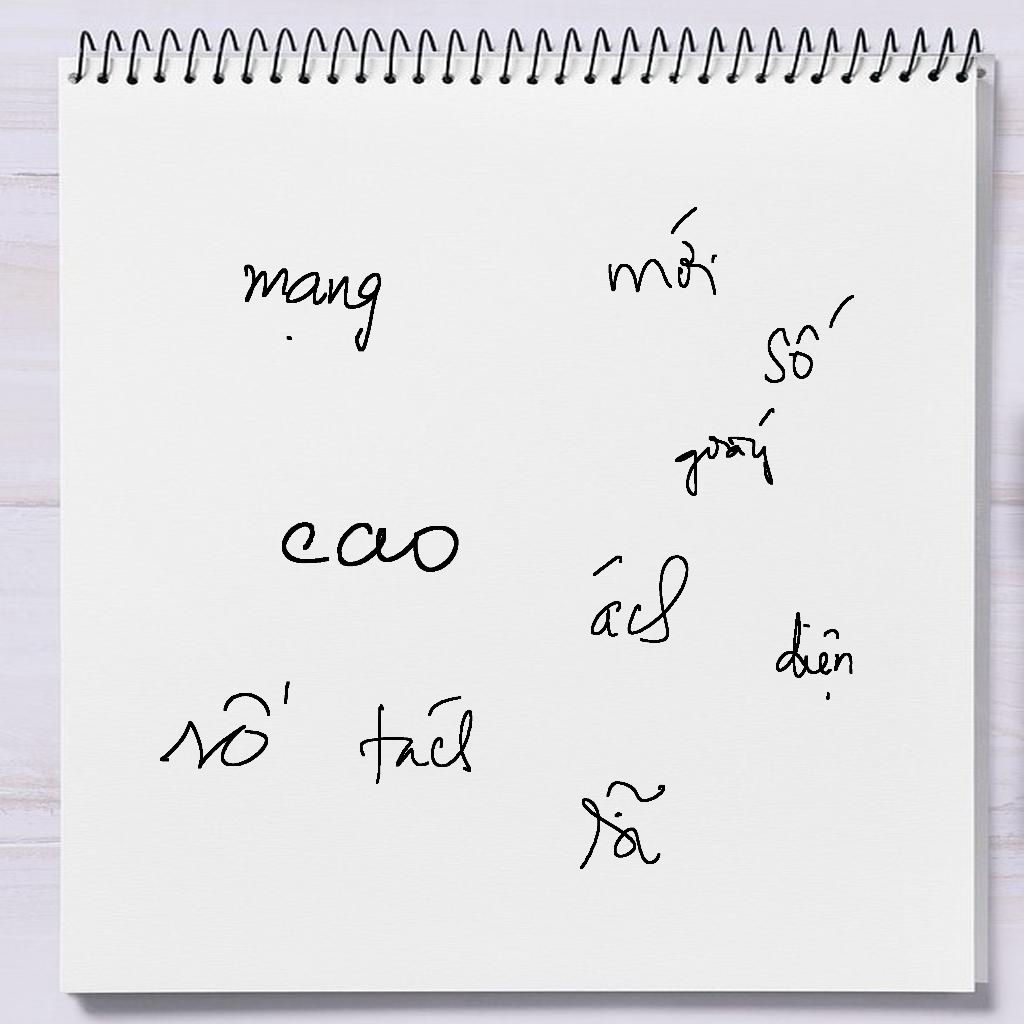 mạng mới
số
quấy
cao
ách
diện
số tách
rã